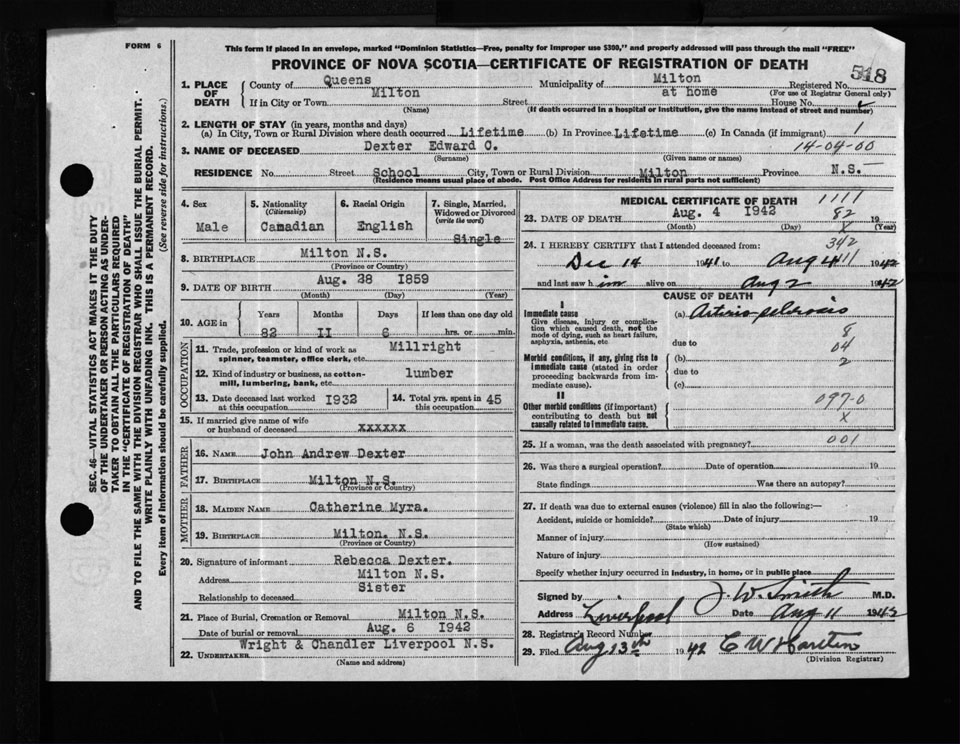 FORM 6
This form if placed in an envelope, marked "Dominion Statistics—Free, penalty for improper use $300," and properly addressed will pass through the mail "FREE"
PROVINCE OF NOVA SCOTIA—CERTIFICATE OF REGISTRATION OF DEATH
SEC. 46—VITAL STATISTICS ACT MAKES IT THE DUTY
OF THE UNDERTAKER OR PERSON ACTING AS UNDER-
TAKER TO OBTAIN ALL THE PARTICULARS REQUIRED
IN THE "CERTIFICATE OF REGISTRATION OF DEATH"
AND TO FILE THE SAME WITH THE DIVISION REGISTRAR WHO SHALL ISSUE THE BURIAL PERMIT.
WRITE PLAINLY WITH UNFADING INK. THIS IS A PERMANENT RECORD.
Every item of Information should be carefully supplied. (See reverse side for instructions.)
1. PLACE OF DEATH County of Queens Municipality of Milton Registered No. 518
If in City or Town Milton Street at home House No.
(For use of Registrar General only)
(Name) (If death occurred in a hospital or institution, give the name instead of street and number)
2. LENGTH OF STAY (in years, months and days)
(a) In City, Town or Rural Division where death occurred Lifetime (b) In Province Lifetime (c) In Canada (if immigrant) 1
3. NAME OF DECEASED Dexter Edward O. 14-04-00
(Surname) (Given name or names)
RESIDENCE No. Street School City, Town or Rural Division Milton Province N.S.
(Residence means usual place of abode. Post Office Address for residents in rural parts not sufficient)
4. Sex Male
5. Nationality (Citizenship) Canadian
6. Racial Origin English
7. Single, Married, Widowed or Divorced (write the word) Single
8. BIRTHPLACE Milton N.S.
(Province or Country)
9. DATE OF BIRTH Aug. 28 1859
(Month) (Day) (Year)
10. AGE in Years Months Days If less than one day old
82 II 6 hrs. or min.
OCCUPATION
11. Trade, profession or kind of work as spinner, teamster, office clerk, etc. Millright
12. Kind of industry or business, as cotton-mill, lumbering, bank, etc. lumber
13. Date deceased last worked at this occupation I932
14. Total yrs. spent in this occupation 45
15. If married give name of wife or husband of deceased xxxxxx
FATHER
16. NAME John Andrew Dexter
17. BIRTHPLACE Milton N.S.
(Province or Country)
MOTHER
18. MAIDEN NAME Catherine Myra.
19. BIRTHPLACE Milton. N.S.
(Province or Country)
20. Signature of informant Rebecca Dexter.
Address Milton N.S.
Relationship to deceased Sister
21. Place of Burial, Cremation or Removal Milton N.S.
Date of burial or removal Aug. 6 I942
22. UNDERTAKER Wright & Chandler Liverpool N.S.
(Name and address)
MEDICAL CERTIFICATE OF DEATH 1111
23. DATE OF DEATH Aug. 4 I942 82 19
(Month) (Day) X (Year)
24. I HEREBY CERTIFY that I attended deceased from: 342
Dec 14 1941 to Aug 4 11 1942
and last saw him alive on Aug 2 1942
CAUSE OF DEATH
I
Immediate cause
Give disease, injury or complication which caused death, not the mode of dying, such as heart failure, asphyxia, asthenia, etc
(a) Arterio-sclerosis
8
due to 04
Morbid conditions, if any, giving rise to immediate cause (stated in order proceeding backwards from immediate cause).
(b) 2
due to
(c)
II
Other morbid conditions (if important) contributing to death but not causally related to immediate cause.
097-0
X
25. If a woman, was the death associated with pregnancy? 001
26. Was there a surgical operation? Date of operation 19
State findings Was there an autopsy?
27. If death was due to external causes (violence) fill in also the following:—
Accident, suicide or homicide? Date of injury 19
(State which)
Manner of injury
(How sustained)
Nature of injury
Specify whether injury occurred in industry, in home, or in public place
Signed by J. W. Smith M.D.
Address Liverpool Date Aug 11 1942
28. Registrar's Record Number
29. Filed Aug 13th 1942 C W
(Division Registrar)